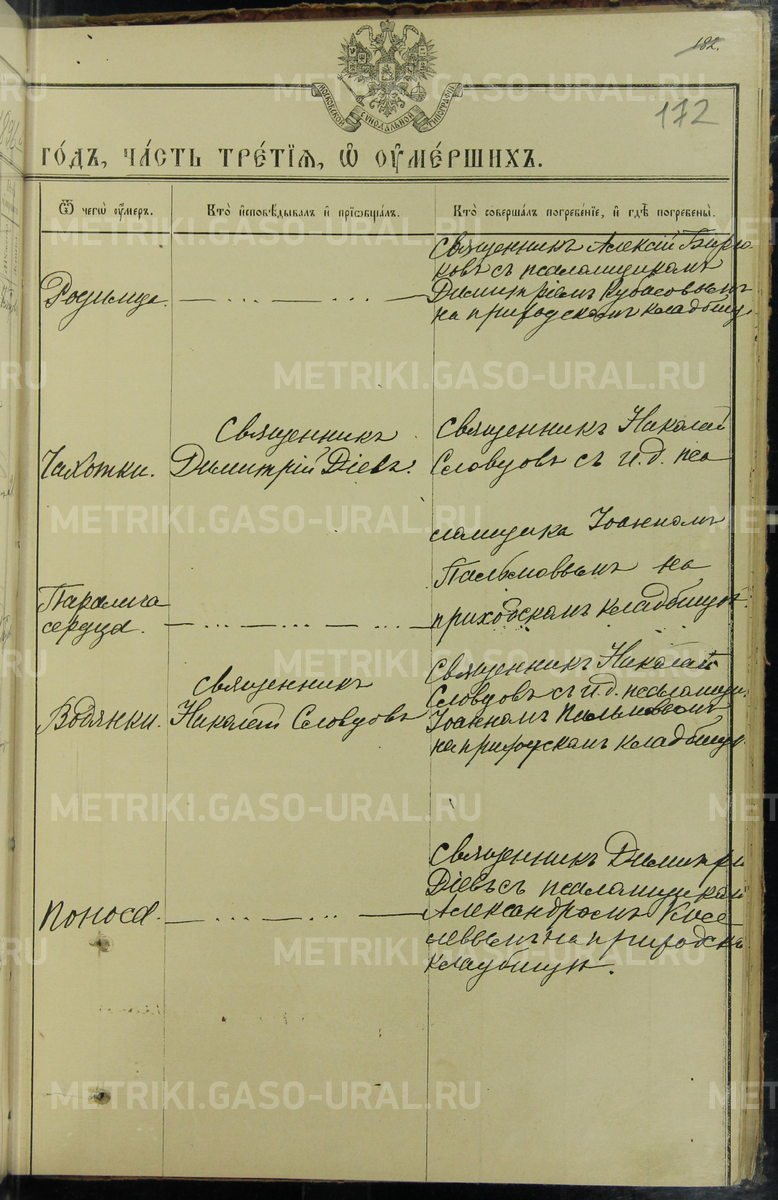 182.
172
МОСКОВСКОЙ СѴНОДАЛЬНОЙ ТИПОГРАФІИ
ГО́ДЪ, ЧА́СТЬ ТРЕ́ТІѦ, Ѡ҆ ОУ҆МЕ́РШИХЪ.
Ѿ чегѡ̀ оу҆́меръ.
Кто̀ и҆сповѣ́дывалъ и҆ прїѡбща́лъ.
Кто̀ соверша́лъ погребе́нїе, и҆ гдѣ̀ погребены̀.
Родимца.
Священникъ Алексій Бирю-
ковъ съ псаломщикомъ
Димитріемъ Кубасовымъ
на приходскомъ кладбищѣ
Чахотки.
Священникъ
Димитрій Діевъ.
Священникъ Николай
Словцовъ съ и.д. пса
ломщика Іоанномъ
Пальмовымъ на
приходскомъ кладбищѣ.
Паралича
сердца.
Водянки.
Священникъ
Николай Словцовъ
Священникъ Николай
Словцовъ съ и.д. псаломщи.
Іоанномъ Пальмовымъ
на приходскомъ кладбищѣ.
Поноса.
Священникъ Димитрі
Діевъ съ псаломщикомъ
Александромъ Кисе
левымъ на приходскомъ
кладбищѣ.
METRIKI.GASO-URAL.RU